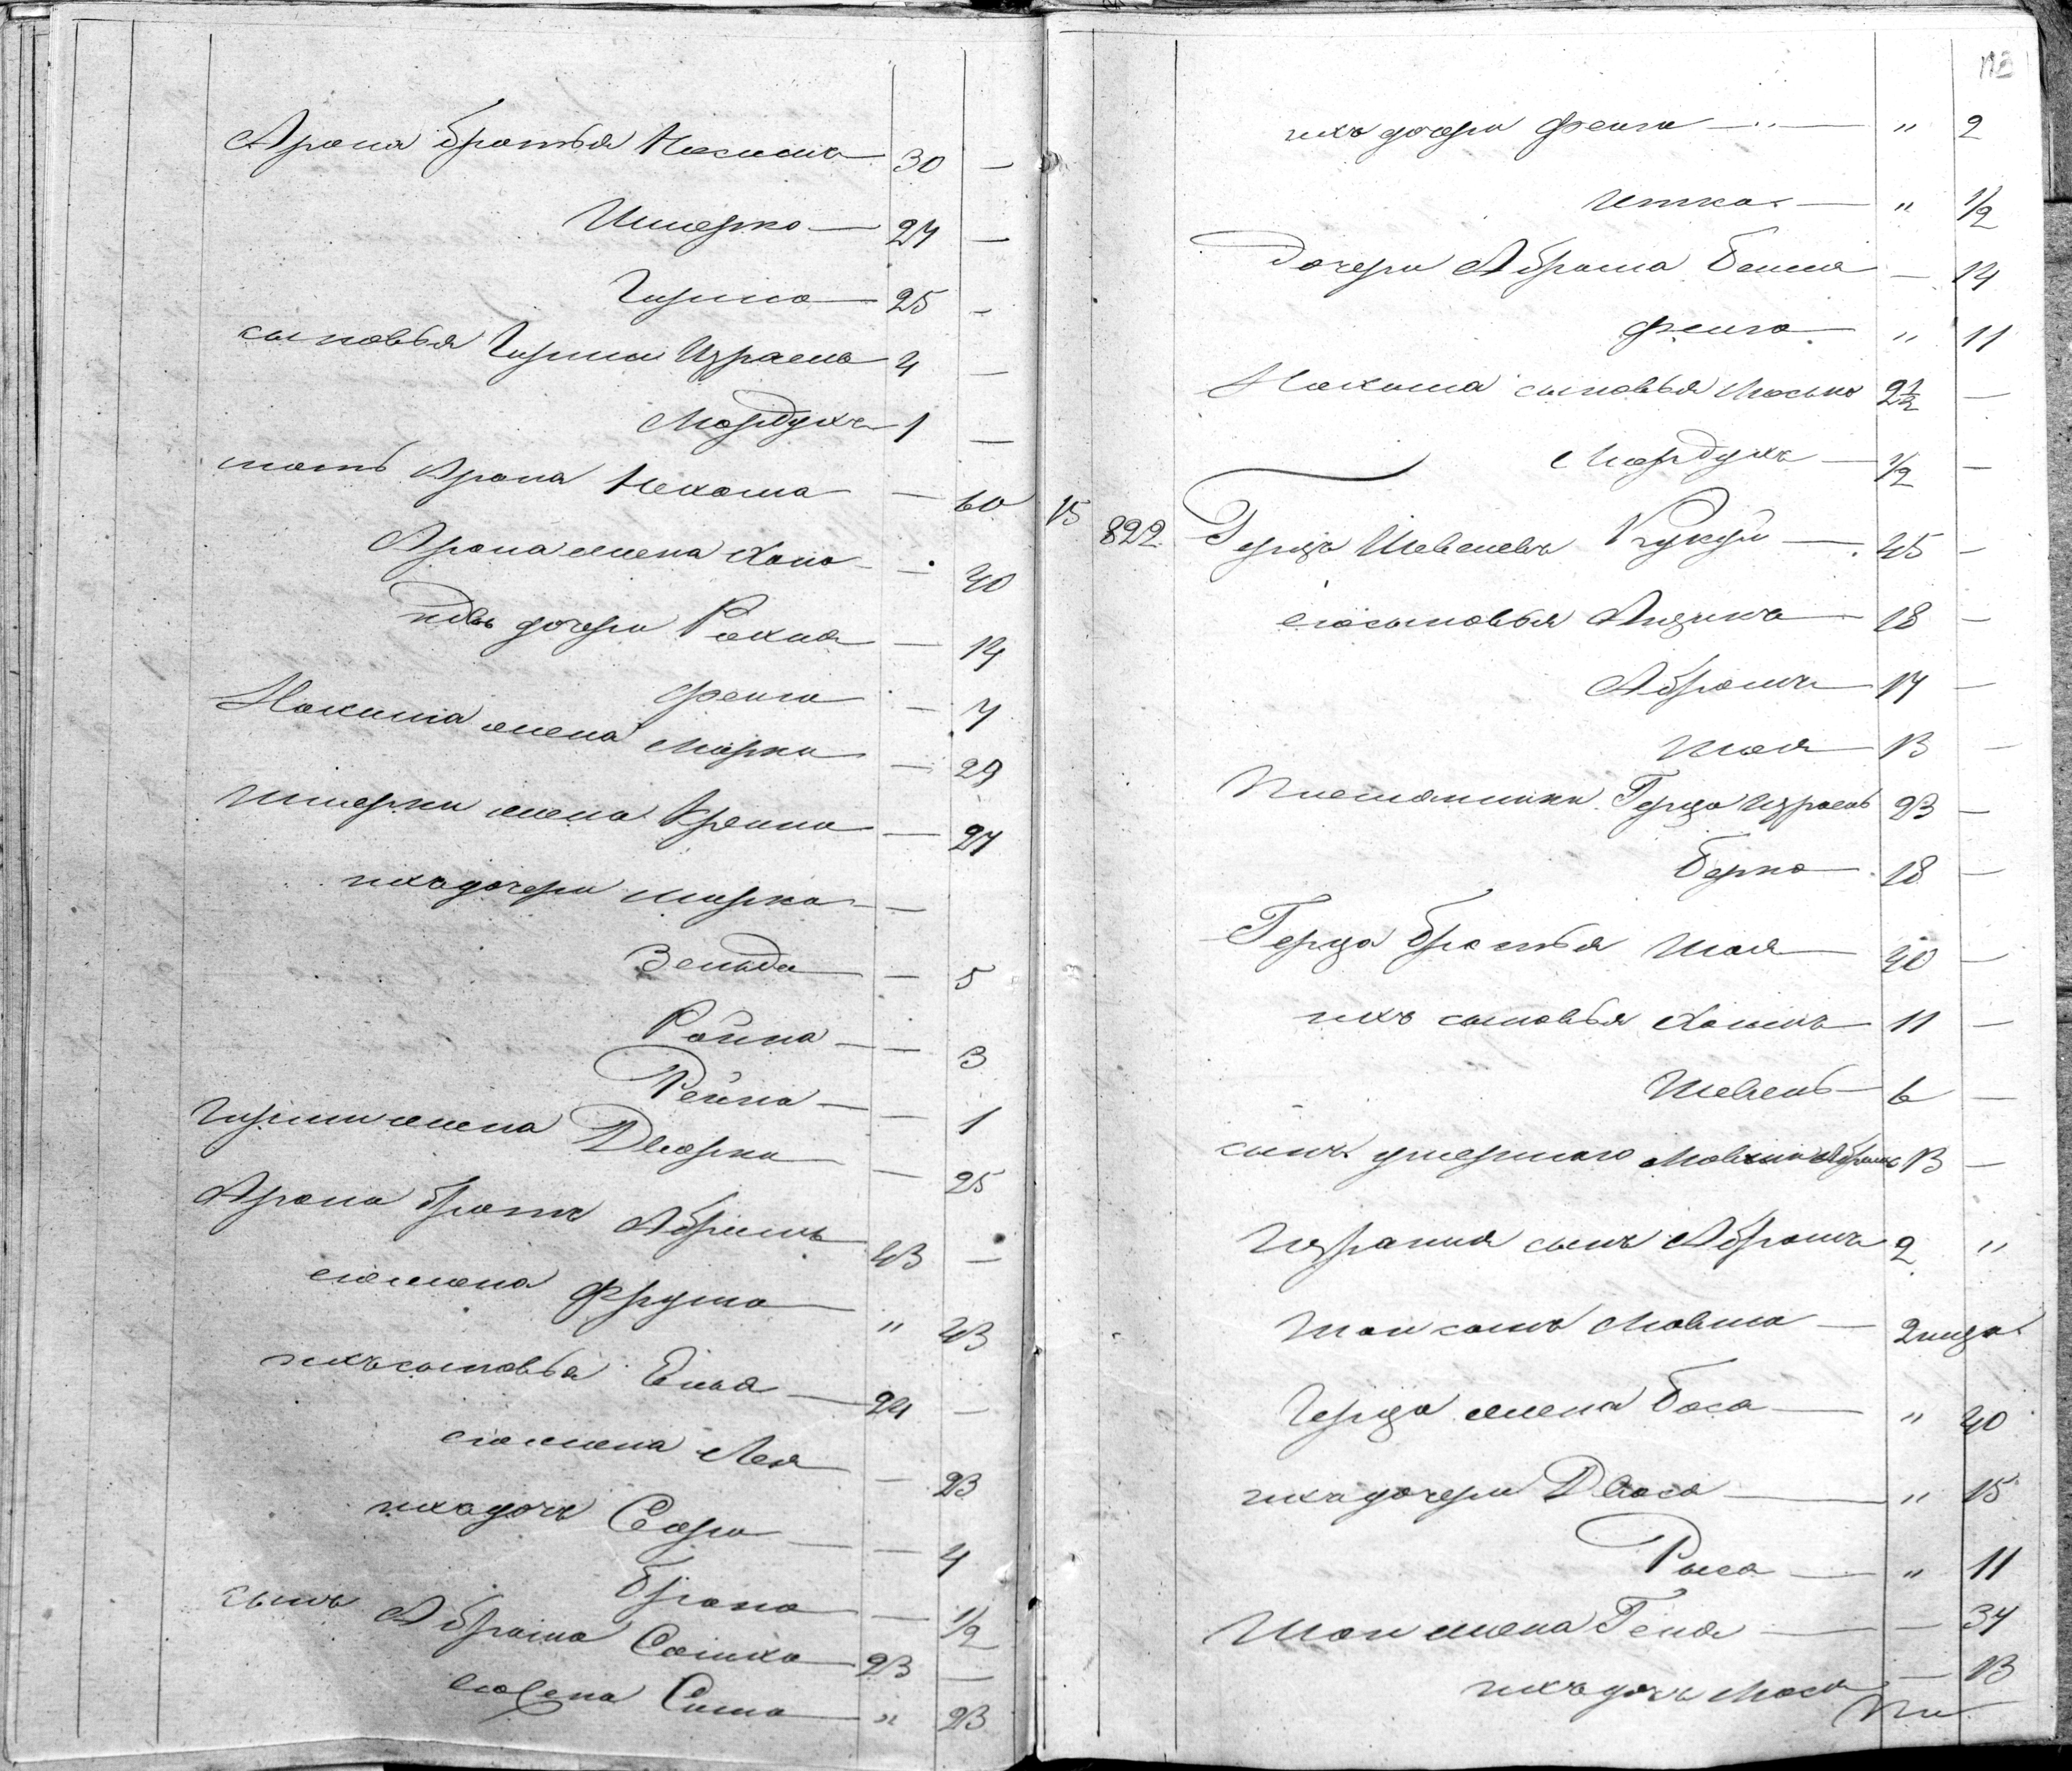 Арона братья Нохимъ 30 —
Шмерко — 27 —
Гирша — 25 —
сыновья Гирши Израель 4 —
Мордухъ 1 —
мать Арона Нехама — 60
Арона жена Хана — 40
ихъ дочери Рохля — 14
Фейга — 7
Нохима жена Мирка — 29
Шмерки жена Крейна — 27
ихъ дочери Мирка —
Зельда — 5
Ройна — 3
Рейна — 1
Гирши жена Двейрка — 25
Арона братъ Абрамъ 43 —
его жена Фрума " 43
ихъ сыновья Елья — 24 —
его жена Лея — 23
ихъ дочь Сора — 4
Брана — 1/2
сынъ Абрама Симха 23 —
его жена Сима — " 23
ихъ дочери Фейга — " 2
Итка — " 1/2
Дочери Абрама Бейля — 14
Фейга — " 11
Нохима сыновья Мосько 2 1/2 —
Мордухъ — 1/2 —
15 822 Герцъ Шевелевъ Кукуй — 45 —
его сыновья Айзикъ 18 —
Абрамъ — 17 —
Шоя — 13 —
Племянники Герца Израель 23 —
Берко — 18 —
Герца братья Шоя — 40 —
ихъ сыновья Хаимъ 11 —
Шевель — 6 —
сынъ умершаго Мовши Абрамъ 13 —
Израиля сынъ Абрамъ 2 "
Шои сынъ Мовша — 2 мѣся
Герца жена Баса — " 40
ихъ дочери Двося — " 15
Рыся — " 11
Шои жена Геня — — 34
ихъ дочь Мося — 13